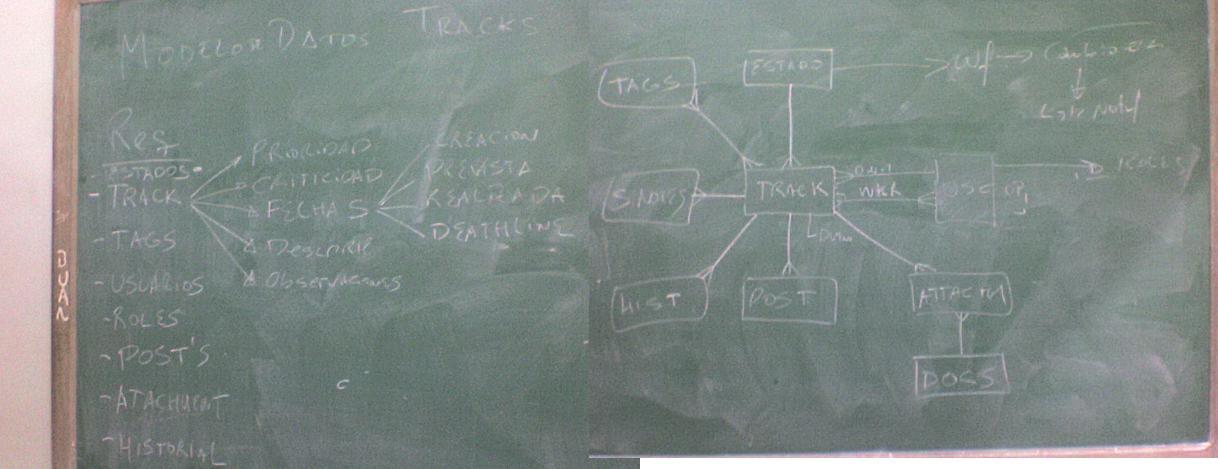 MODELO DE DATOS TRACKS
Req
- ESTADOS
- TRACK
- TAGS
- USUARIOS
- ROLES
- POST'S
- ATACHMENT
- HISTORIAL
PRIORIDAD
CRITICIDAD
FECHAS
Descrip
Observaciones
CREACION
PREVISTA
REALIZADA
DEATHLINE
TAGS
ESTADO
Wf
TRACK
WRK
ROLES
HIST
POST
ATTACH
DOCS
BUAN